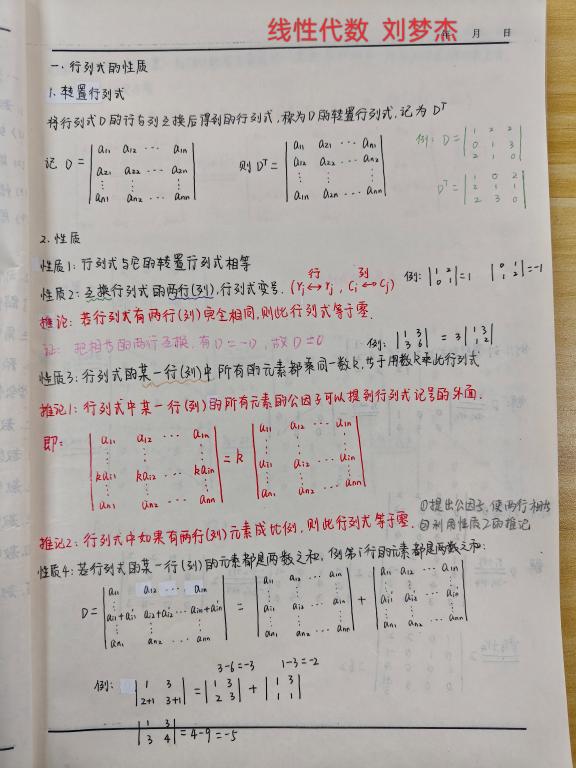 线性代数 刘梦杰
年 月 日
一.行列式的性质
1.转置行列式
将行列式D的行与列互换后得到的行列式,称为D的转置行列式,记为 Dᵀ
记 D = | a11 a12 ··· a1n ; a21 a22 ··· a2n ; ⋮ ⋮ ⋮ ; an1 an2 ··· ann | 则 Dᵀ = | a11 a21 ··· an1 ; a12 a22 ··· an2 ; ⋮ ⋮ ⋮ ; a1n a2n ··· ann |
例: D = | 1 2 2 ; 0 1 3 ; 2 1 0 |
Dᵀ = | 1 0 2 ; 2 1 1 ; 2 3 0 |
2.性质
性质1:行列式与它的转置行列式相等
行 列
性质2:互换行列式的两行(列),行列式变号.(ri↔rj, ci↔cj) 例: | 1 2 ; 0 1 | = 1 | 0 1 ; 1 2 | = -1
推论:若行列式有两行(列)完全相同,则此行列式等于零.
证:把相同的两行互换,有D=-D,故D=0
例: | 1 3 ; 3 6 | = 3 | 1 3 ; 1 2 |
性质3:行列式的某一行(列)中所有的元素都乘同一数k,等于用数k乘此行列式
推论1:行列式中某一行(列)的所有元素的公因子可以提到行列式记号的外面.
即: | a11 a12 ··· a1n ; ⋮ ; kai1 kai2 ··· kain ; ⋮ ; an1 an2 ··· ann | = k | a11 a12 ··· a1n ; ⋮ ; ai1 ai2 ··· ain ; ⋮ ; an1 an2 ··· ann |
①提出公因子,使两行相同
②利用性质2的推论
推论2:行列式中如果有两行(列)元素成比例,则此行列式等于零.
性质4:若行列式的某一行(列)的元素都是两数之和,例第i行的元素都是两数之和:
D = | a11 a12 ··· a1n ; ⋮ ; ai1+a'i1 ai2+a'i2 ··· ain+a'in ; ⋮ ; an1 an2 ··· ann | = | a11 a12 ··· a1n ; ⋮ ; ai1 ai2 ··· ain ; ⋮ ; an1 an2 ··· ann | + | a11 a12 ··· a1n ; ⋮ ; a'i1 a'i2 ··· a'in ; ⋮ ; an1 an2 ··· ann |
3-6=-3 1-3=-2
例: | 1 3 ; 2+1 3+1 | = | 1 3 ; 2 3 | + | 1 3 ; 1 1 |
| 1 3 ; 3 4 | = 4-9 = -5